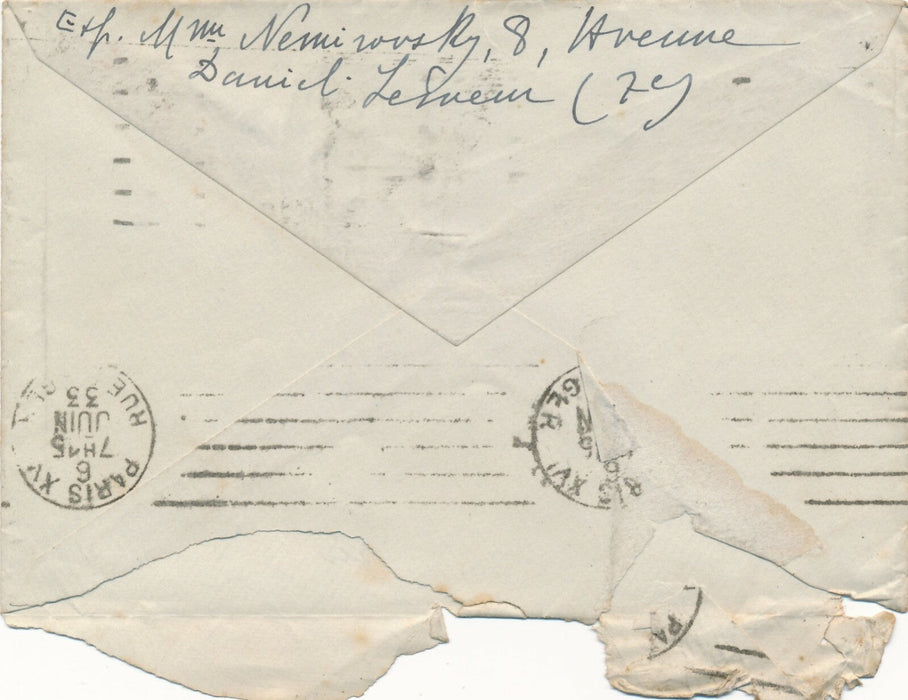 Exp. Mme Nemirovsky, 8, Avenue
Daniel Lesueur (7e)
PARIS XVI
6
7H15
JUIN
33
RUE
GER
PARIS XVI
PA